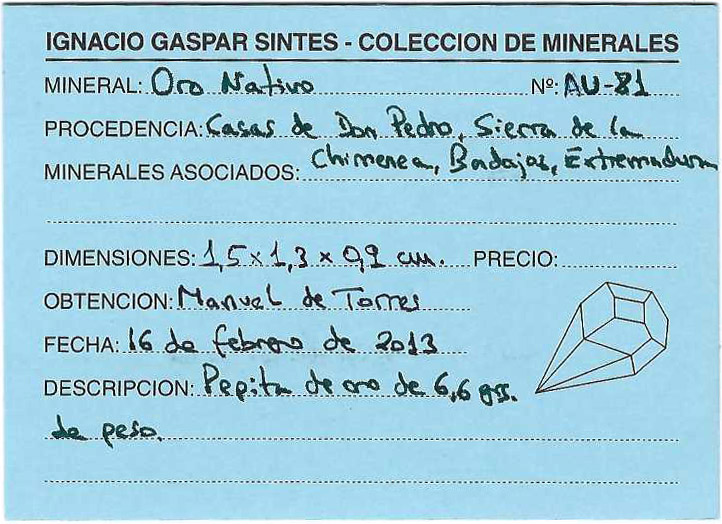 IGNACIO GASPAR SINTES - COLECCION DE MINERALES
MINERAL: Oro Nativo Nº: AU-81
PROCEDENCIA: Casas de Don Pedro, Sierra de la
Chimenea, Badajoz, Extremadura
MINERALES ASOCIADOS:
DIMENSIONES: 1,5 x 1,3 x 0,9 cm. PRECIO:
OBTENCION: Manuel de Torres
FECHA: 16 de febrero de 2013
DESCRIPCION: Pepita de oro de 6,6 grs.
de peso.